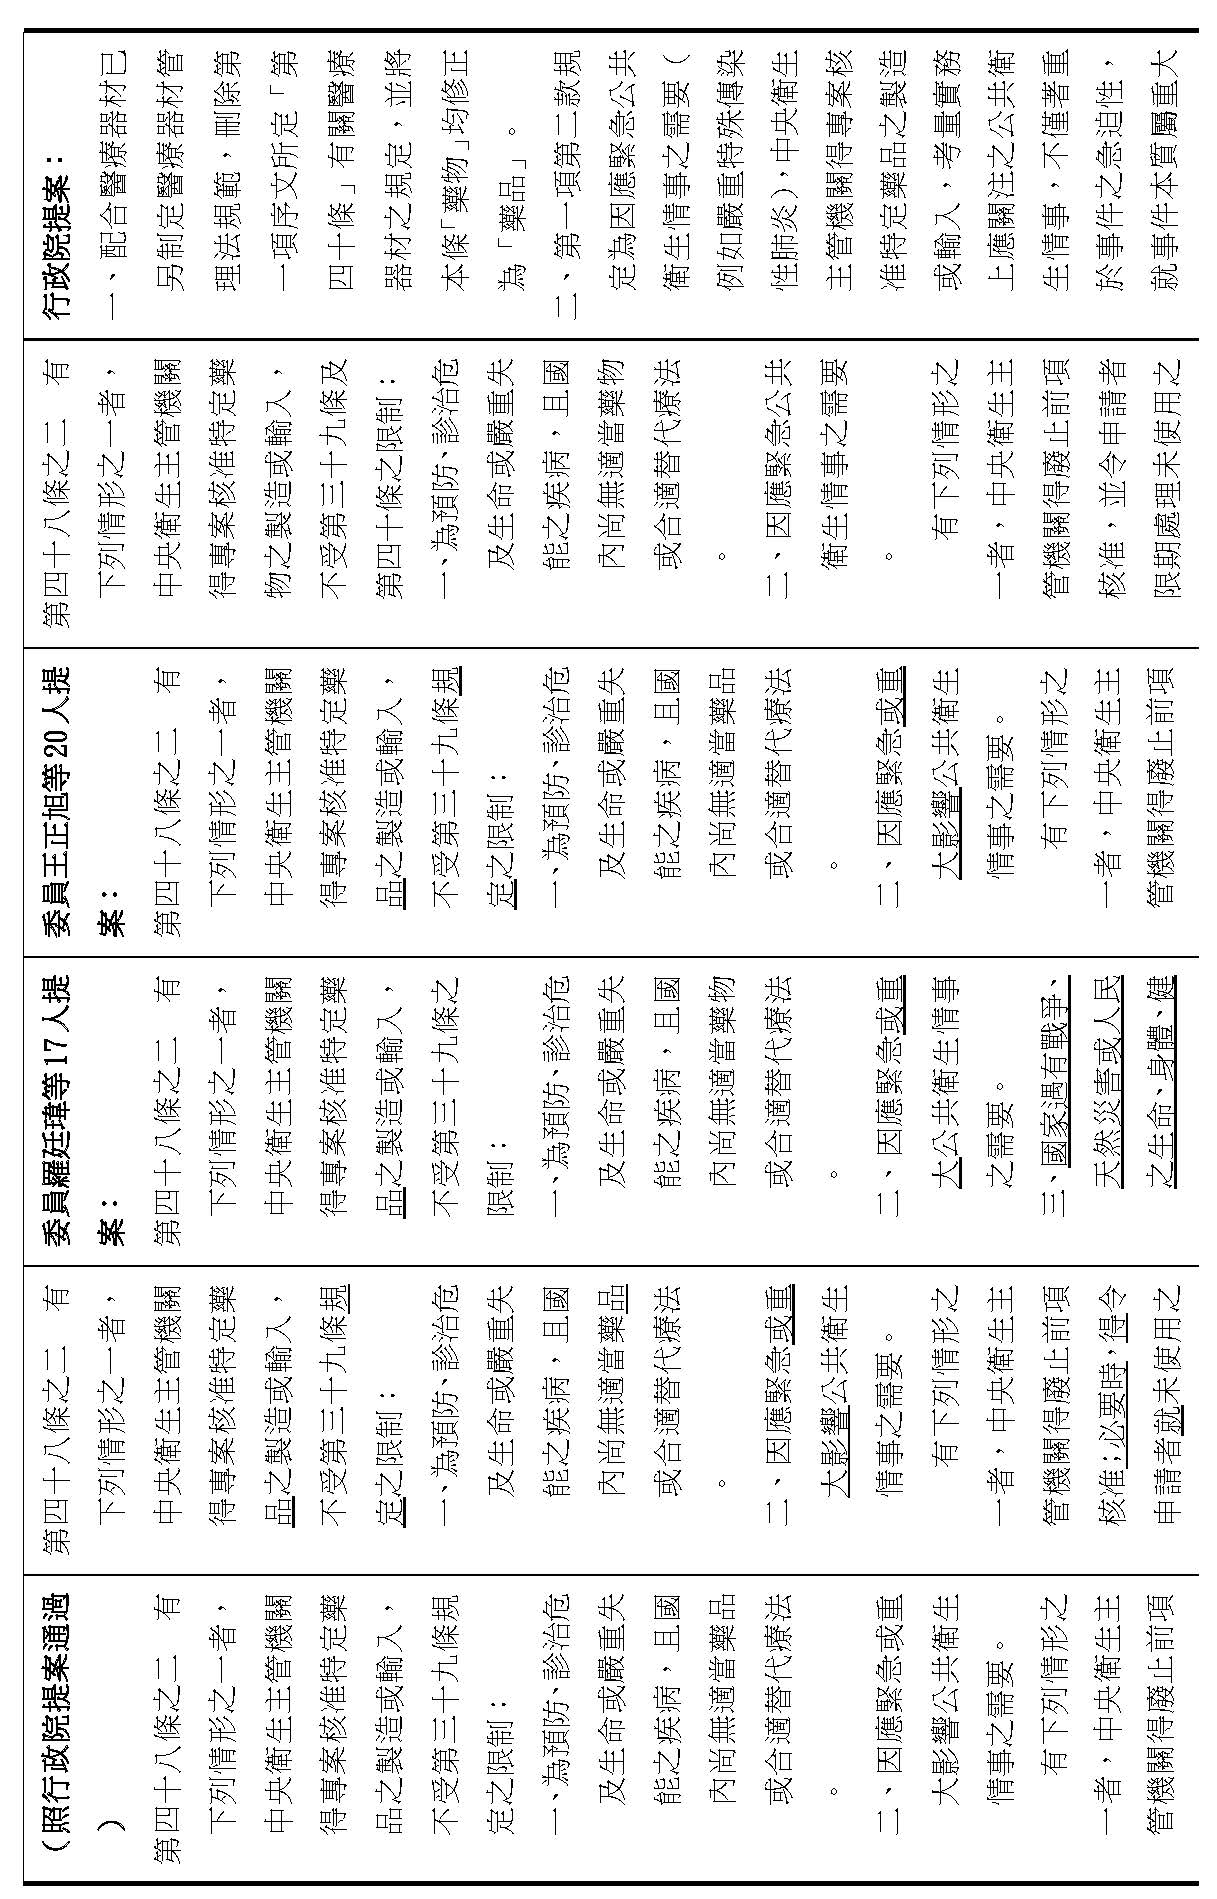 （照行政院提案通過
）
第四十八條之二　有
下列情形之一者，
中央衛生主管機關
得專案核准特定藥
品之製造或輸入，
不受第三十九條規
定之限制：
一、為預防、診治危
及生命或嚴重失
能之疾病，且國
內尚無適當藥品
或合適替代療法
。
二、因應緊急或重
大影響公共衛生
情事之需要。
有下列情形之
一者，中央衛生主
管機關得廢止前項
第四十八條之二　有
下列情形之一者，
中央衛生主管機關
得專案核准特定藥
品之製造或輸入，
不受第三十九條規
定之限制：
一、為預防、診治危
及生命或嚴重失
能之疾病，且國
內尚無適當藥品
或合適替代療法
。
二、因應緊急或重
大影響公共衛生
情事之需要。
有下列情形之
一者，中央衛生主
管機關得廢止前項
核准；必要時，得令
申請者就未使用之
委員羅廷瑋等17人提
案：
第四十八條之二　有
下列情形之一者，
中央衛生主管機關
得專案核准特定藥
品之製造或輸入，
不受第三十九條之
限制：
一、為預防、診治危
及生命或嚴重失
能之疾病，且國
內尚無適當藥物
或合適替代療法
。
二、因應緊急或重
大公共衛生情事
之需要。
三、國家遇有戰爭、
天然災害或人民
之生命、身體、健
委員王正旭等20人提
案：
第四十八條之二　有
下列情形之一者，
中央衛生主管機關
得專案核准特定藥
品之製造或輸入，
不受第三十九條規
定之限制：
一、為預防、診治危
及生命或嚴重失
能之疾病，且國
內尚無適當藥品
或合適替代療法
。
二、因應緊急或重
大影響公共衛生
情事之需要。
有下列情形之
一者，中央衛生主
管機關得廢止前項
第四十八條之二　有
下列情形之一者，
中央衛生主管機關
得專案核准特定藥
物之製造或輸入，
不受第三十九條及
第四十條之限制：
一、為預防、診治危
及生命或嚴重失
能之疾病，且國
內尚無適當藥物
或合適替代療法
。
二、因應緊急公共
衛生情事之需要
。
有下列情形之
一者，中央衛生主
管機關得廢止前項
核准，並令申請者
限期處理未使用之
行政院提案：
一、配合醫療器材已
另制定醫療器材管
理法規範，刪除第
一項序文所定「第
四十條」有關醫療
器材之規定，並將
本條「藥物」均修正
為「藥品」。
二、第一項第二款規
定為因應緊急公共
衛生情事之需要（
例如嚴重特殊傳染
性肺炎），中央衛生
主管機關得專案核
准特定藥品之製造
或輸入，考量實務
上應關注之公共衛
生情事，不僅著重
於事件之急迫性，
就事件本質屬重大